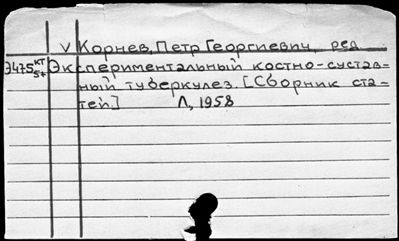 V Корнев, Петр Георгиевич, ред
Э475 КТ Экспериментальный костно-сустав-
5+ ный туберкулез. [Сборник ста-
тей.] Л, 1958